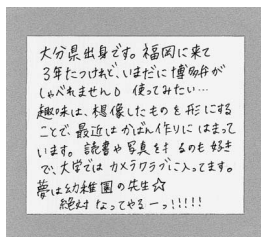 大分県出身です。福岡に来て
3年たつけれど、いまだに博多弁が
しゃべれません。使ってみたい…
趣味は、想像したものを形にする
ことで、最近はかばん作りにはまって
います。読書や写真をとるのも好き
で、大学ではカメラクラブに入ってます。
夢は幼稚園の先生☆
絶対なってやるーっ!!!!!